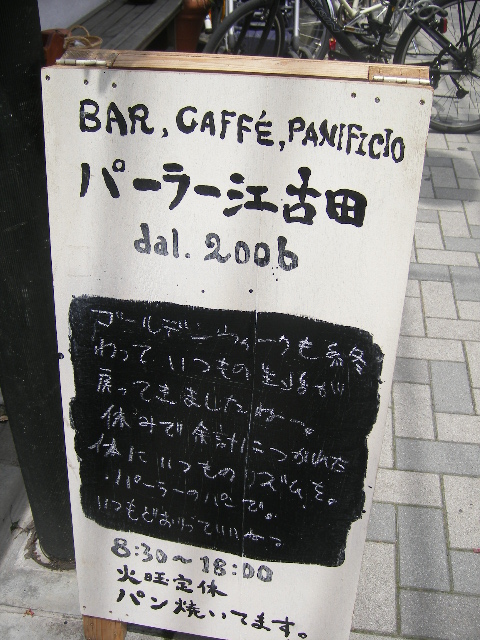 BAR, CAFFÉ, PANIFICIO
パーラー江古田
dal. 2006
ゴールデンウィークも終
わって いつもの生活が
戻ってきましたねー。
休みで余計につかれた
体に いつものリズムを。
・パーラーのパンで。
いつもどおりっていいねー
8:30～18:00
火曜定休
パン焼いてます。